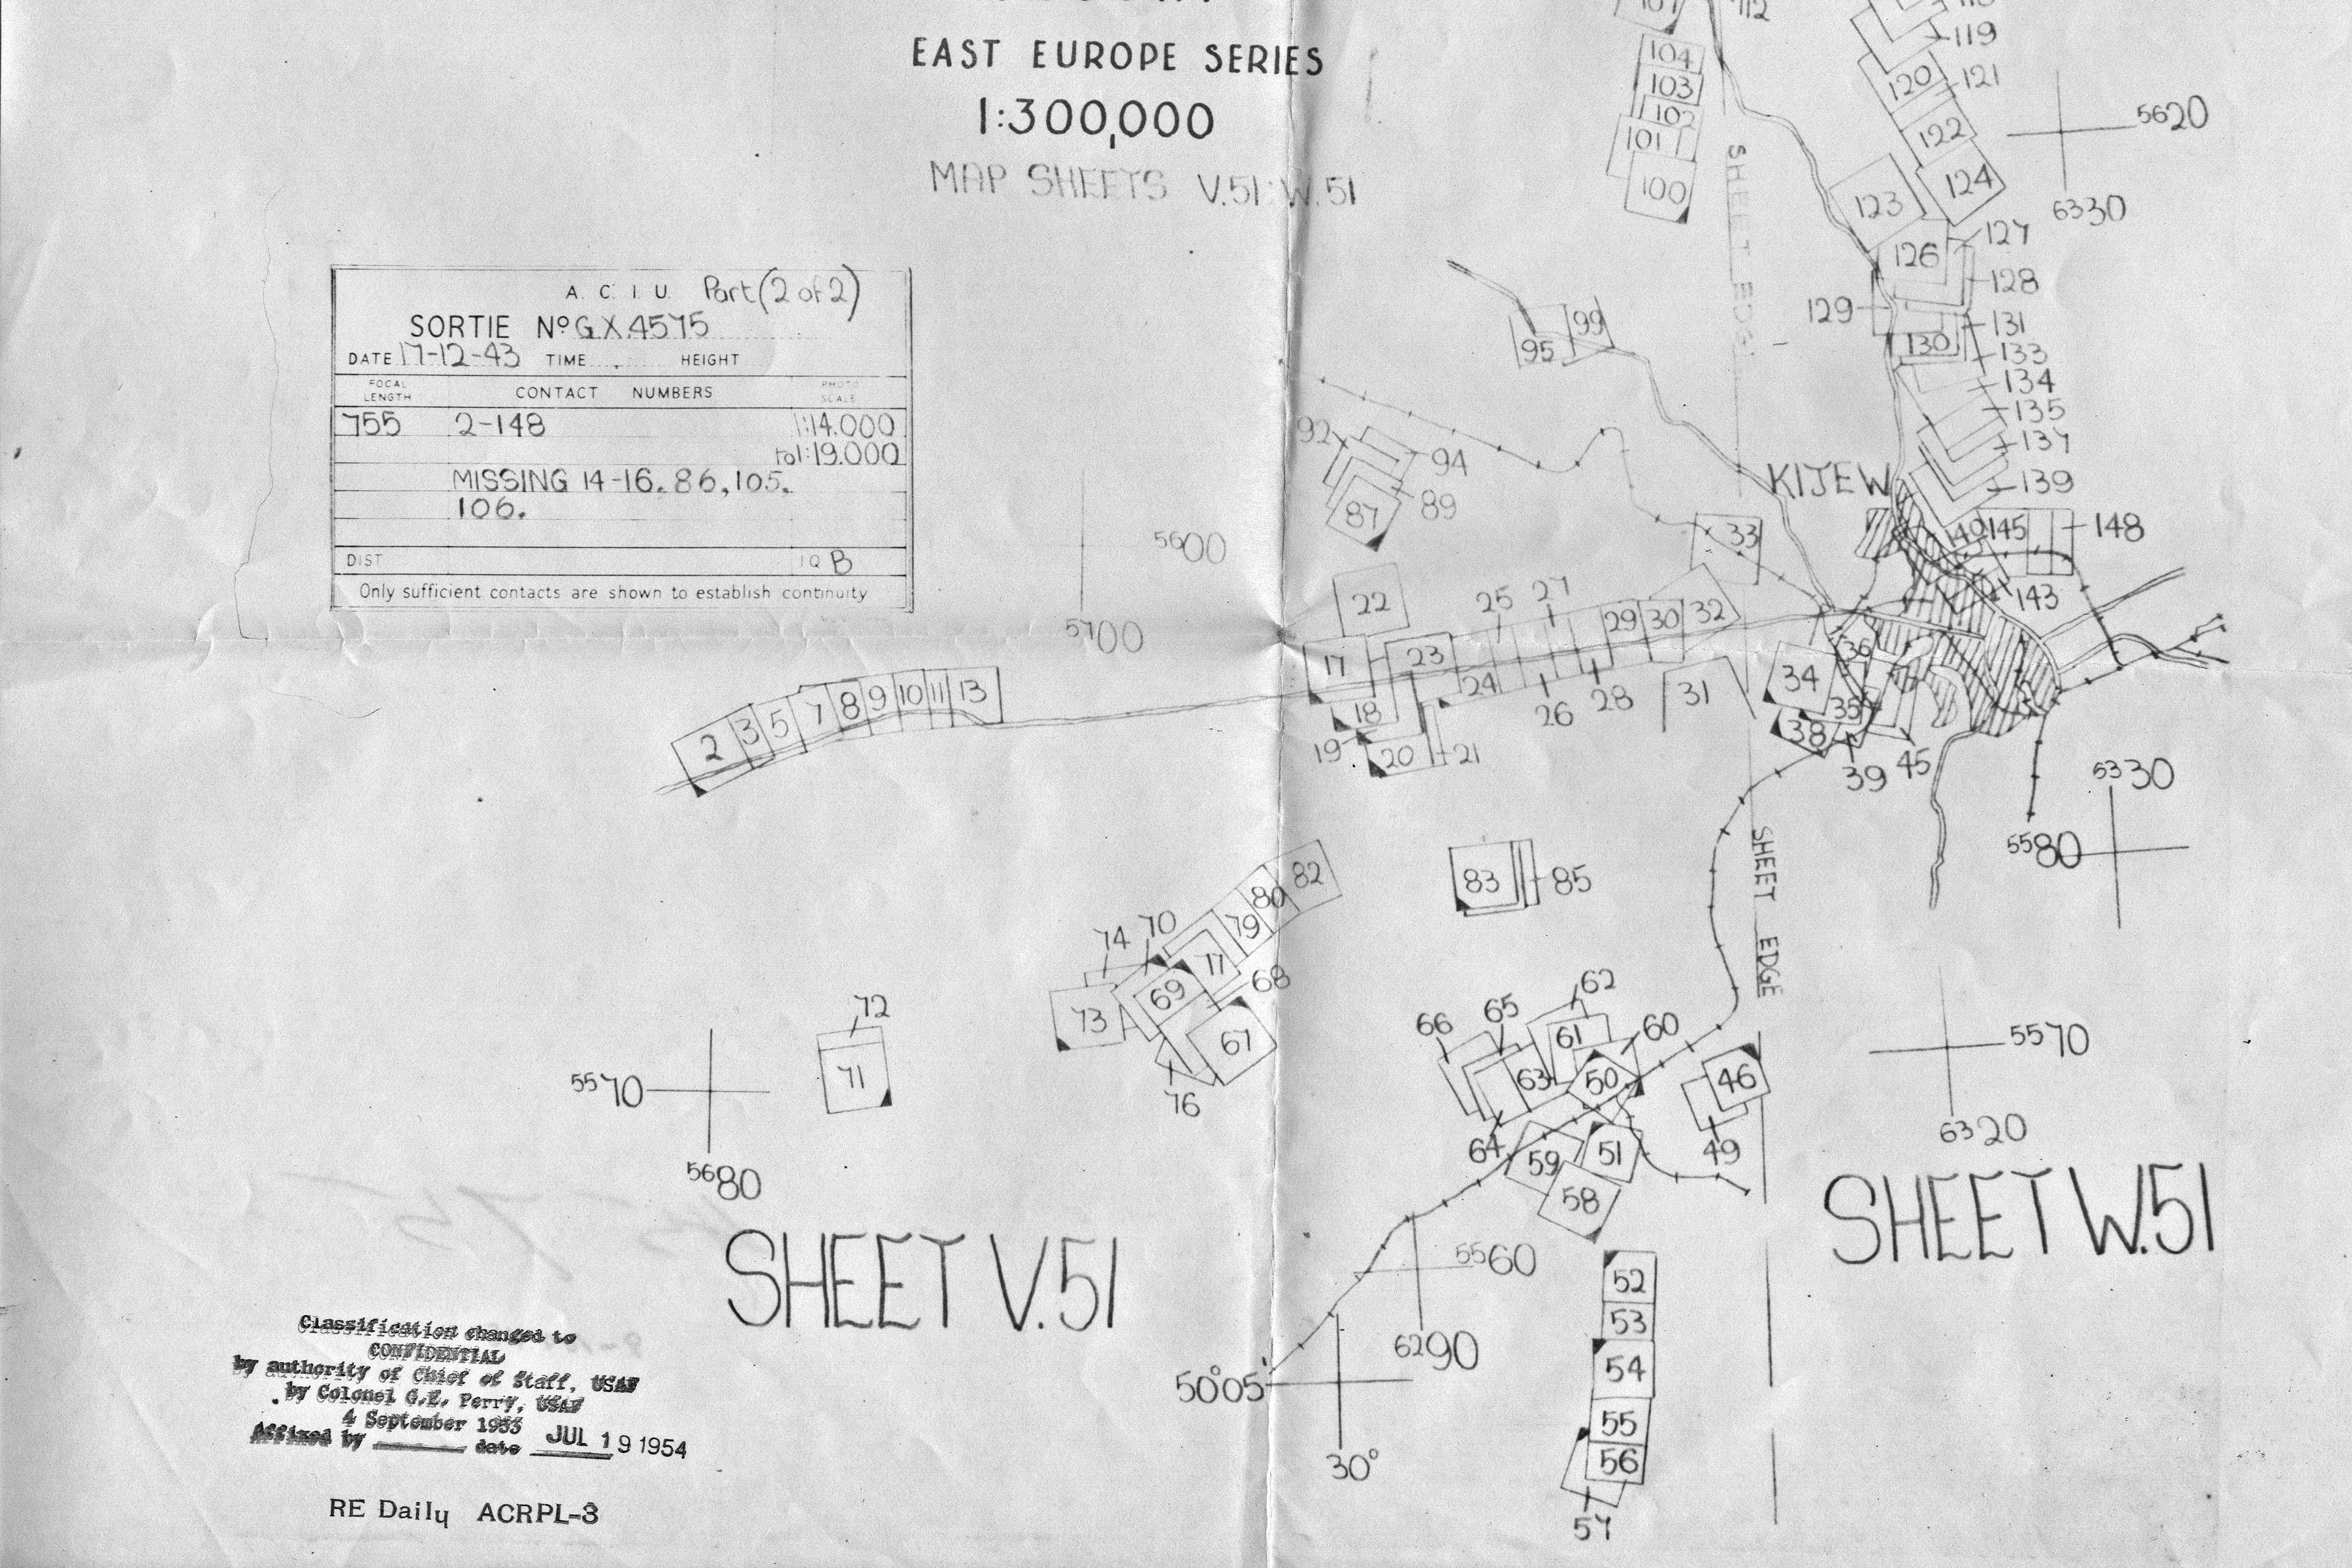 EAST EUROPE SERIES
1:300,000
MAP SHEETS V.51: W.51
A. C. I. U. Part (2 of 2)
SORTIE Nº GX.4575
DATE 17-12-43 TIME HEIGHT
FOCAL LENGTH CONTACT NUMBERS PHOTO SCALE
755 2-148 1:14.000
to1:19.000
MISSING 14-16. 86, 105.
106.
DIST IQ B
Only sufficient contacts are shown to establish continuity
107
112
104
103
102
101
100
119
120
121
122
124
123
126
127
128
129
130
131
133
134
135
137
139
140
145
148
143
5620
6330
SHEET EDGE
99
95
92
94
89
87
KIJEW
33
5600
5700
22
17
23
24
25
27
29
30
32
18
19
20
21
26
28
31
34
36
35
38
39
45
2
3
5
7
8
9
10
11
13
5330
5580
SHEET EDGE
83
85
82
80
79
77
74
70
69
68
73
67
76
72
71
5570
5680
66
65
62
61
60
63
50
64
59
51
58
46
49
5570
6320
SHEET V.51
SHEET W.51
5560
6290
50°05'
30°
52
53
54
55
56
57
Classification changed to
CONFIDENTIAL
by authority of Chief of Staff, USAF
by Colonel G.E. Perry, USAF
4 September 1953
Affixed by date JUL 19 1954
RE Daily ACRPL-3